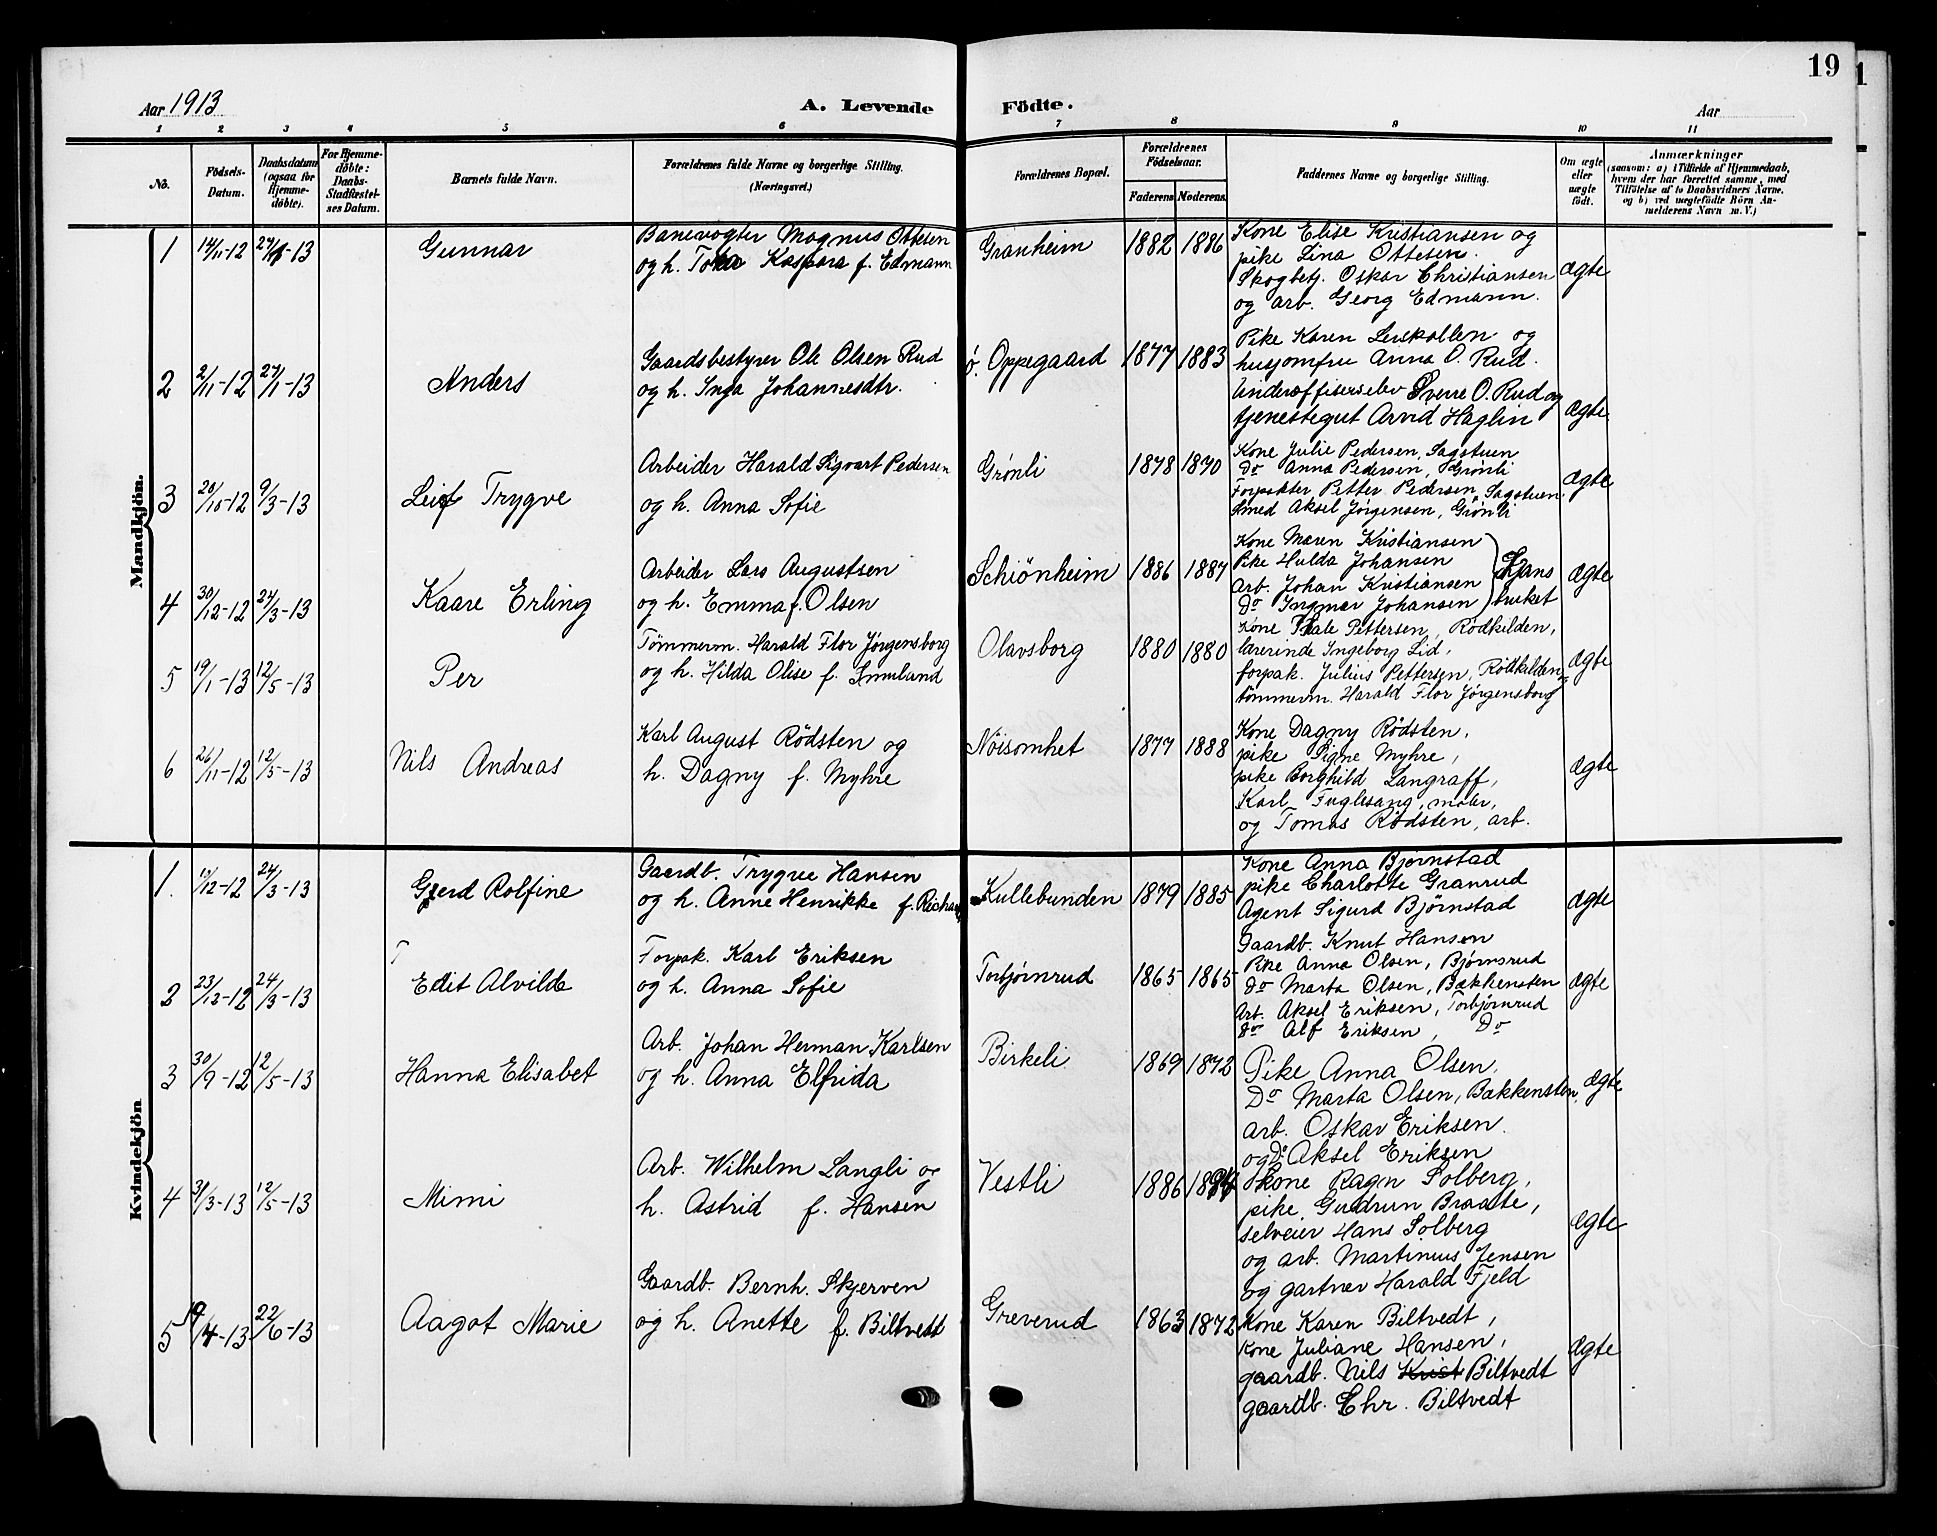 19
Aar 1913
A. Levende Födte.
Aar
1 2 3 4 5 6 7 8 9 10 11
No.
Födsels-Datum.
Daabsdatum (ogsaa for Hjemme-döbte).
For Hjemme-döbte: Daabs-Stadfæstel-ses Datum.
Barnets fulde Navn.
Forældrenes fulde Navne og borgerlige Stilling. (Næringsvei.)
Forældrenes Bopæl.
Forældrenes Födselsaar.
Faderens Moderens
Faddernes Navne og borgerlige Stilling.
Om ægte eller uægte födt.
Anmærkninger
(saasom: a) i Tilfælde af Hjemmedaab,
hvem der har forrettet samme, med
Tilföielse af to Daabsvidners Navne,
og b) ved uægtefödte Börn An-
melderens Navn m. V.)
Mandkjön.
1 14/11-12 -13 Gunnar
Banevogter Magnus Ottesen
og h. Kaspara f. Edmann
Granheim 1882 1886
Kone Elise Kristiansen og
pike Lina Ottesen.
Skogbetj. Oskar Christiansen
og arb. Georg Edmann.
ægte
2 2/11-12 27/1-13 Anders
Gaardsbestyrer Ole Olsen Rud
og h. Inga Johannesdtr.
ö. Oppegaard 1877 1883
Pike Karen Lerskallen og
husjomfru Anna O. Rud.
Underoffiserselev Sverre O. Rud og
tjenestegut Arvid Haglin
ægte
3 20/10-12 9/3-13 Leif Trygve
Arbeider Harald Sigvart Pedersen
og h. Anna Sofie
Grønli 1878 1870
Kone Julie Pedersen, Sagstuen
Do Anna Pedersen, Grønli
Forpakter Petter Pedersen, Sagstuen
Smed Aksel Jørgensen, Grønli
ægte
4 30/12-12 24/3-13 Kaare Erling
Arbeider Lars Augustsen
og h. Emma f. Olsen
Schiönheim 1886 1887
Kone Maren Kristiansen
Pike Hulda Johansen
Arb. Johan Kristiansen
Do Ingmar Johansen
Ljans bruket
ægte
5 19/1-13 12/5-13 Per
Tömmerm. Harald Flor Jørgensborg
og h. Hilda Olise f.
Olavsborg 1880 1880
Kone Thale Pettersen, Rödkilden,
lærerinde Ingeborg Lid,
forpak. Julius Pettersen, Rödkilden,
tömmerm. Harald Flor Jørgensborg
ægte
6 26/11-12 12/5-13 Nils Andreas
Karl August Rödsten og
h. Dagny f. Myhre
Nöisomhet 1877 1888
Kone Dagny Rödsten,
pike Signe Myhre,
pike Borghild Langraff,
Karl Fuglesang, maler,
og Tomas Rødsten, arb.
ægte
Kvindekjön
1. 10/12-12 24/3-13 Gjerd Rolfine
Gaardb. Trygve Hansen
og h. Anne Henrikke f. Richard
Kullebunden 1879 1885
Kone Anna Bjørnstad
pike Charlotte Granrud
Agent Sigurd Bjørnstad
Gaardb. Knut Hansen
ægte
2 23/12-12 24/3-13 Edit Alvilde
Forpak. Karl Eriksen
og h. Anna Sofie
Torbjørnrud 1865 1865
Pike Anna Olsen, Bjørnsrud
do Marta Olsen, Bækkensten
Arb. Aksel Eriksen, Torbjørnrud
do Alf Eriksen, Do
ægte
3 30/9-12 12/5-13 Hanna Elisabet
Arb. Johan Herman Karlsen
og h. Anna Elfrida
Birkeli 1869 1872
Pike Anna Olsen,
Do Marta Olsen, Bækkensten,
arb. Oskar Eriksen.
og Do Aksel Eriksen
ægte
4 31/3-13 12/5-13 Mimi
Arb. Wilhelm Langli og
h. Astrid f. Hansen
Vestli 1886
kone Ragn Solberg,
pike Gudrun Braate,
selveier Hans Solberg
og arb. Martinius Jensen
og gartner Harald Fjeld
ægte
5 19/4-13 22/6-13 Aagot Marie
Gaardb. Bernh. Skjerven
og h. Anette f. Biltvedt
Greverud 1863 1872
Kone Karen Biltvedt,
Kone Juliane Hansen,
gaardb. Nils Krist Biltvedt
gaardb. Chr. Biltvedt
ægte